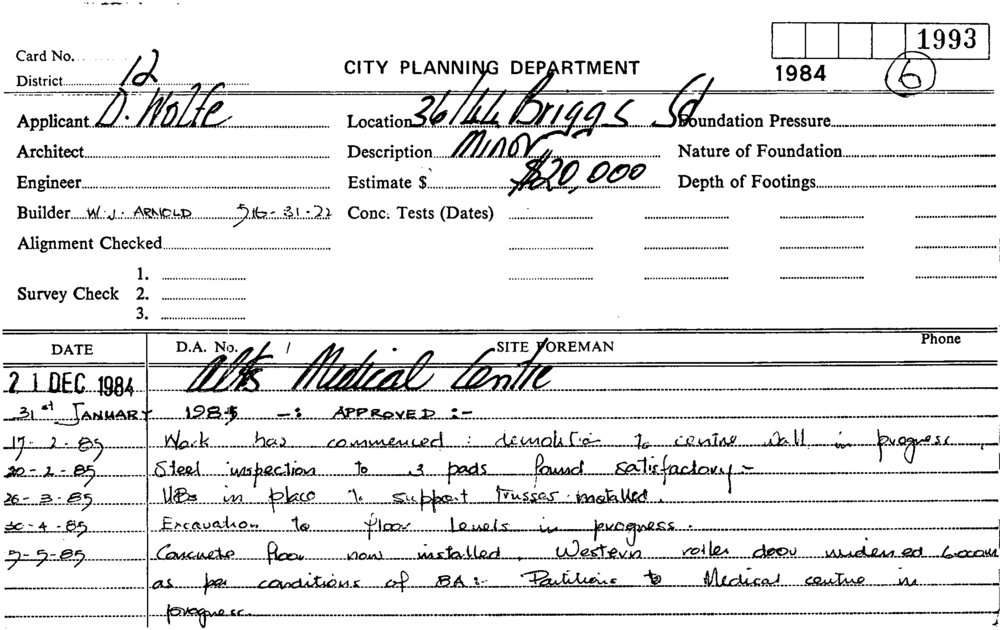 1993
Card No.
1984
6
CITY PLANNING DEPARTMENT
District 12
Applicant D. Wolfe
Location 36/44 Briggs Sd
Foundation Pressure
Architect
Description Minor
Nature of Foundation
Engineer
Estimate $ $20,000
Depth of Footings
Builder W.J. ARNOLD 516-31-22
Conc. Tests (Dates)
Alignment Checked
1.
Survey Check 2.
3.
DATE
D.A. No. /
SITE FOREMAN
Phone
21 DEC 1984
Alts Medical Centre
31st JANUARY 1985 -: APPROVED :-
17-2-85 Work has commenced : demolition to centre wall in progress.
20-2-85 Steel inspection to 3 pads found satisfactory -
26-3-85 UBs in place to support trusses installed.
30-4-85 Excavation to floor levels in progress.
5-85 Concrete floor now installed. Western roller door widened 600mm
as per conditions of BA:- Partitions to Medical centre in
progress.